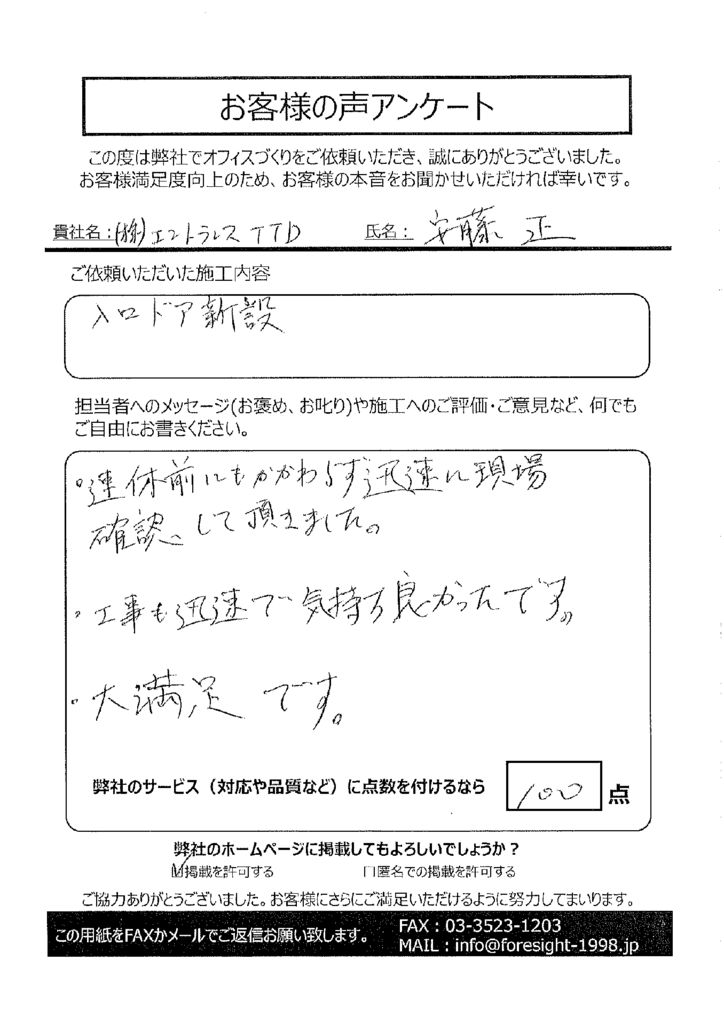 お客様の声アンケート
この度は弊社でオフィスづくりをご依頼いただき、誠にありがとうございました。
お客様満足度向上のため、お客様の本音をお聞かせいただければ幸いです。
貴社名:(株)エントランスTTD 氏名: 安藤 正
ご依頼いただいた施工内容
入口ドア新設
担当者へのメッセージ(お褒め、お叱り)や施工へのご評価・ご意見など、何でも
ご自由にお書きください。
・連休前にもかかわらず迅速に現場
確認、して頂きました。
・工事も迅速で気持ち良かったです。
・大満足です。
弊社のサービス(対応や品質など)に点数を付けるなら 100 点
弊社のホームページに掲載してもよろしいでしょうか？
☑掲載を許可する □匿名での掲載を許可する
ご協力ありがとうございました。お客様にさらにご満足いただけるように努力してまいります。
この用紙をFAXかメールでご返信お願い致します。
FAX : 03-3523-1203
MAIL : info@foresight-1998.jp